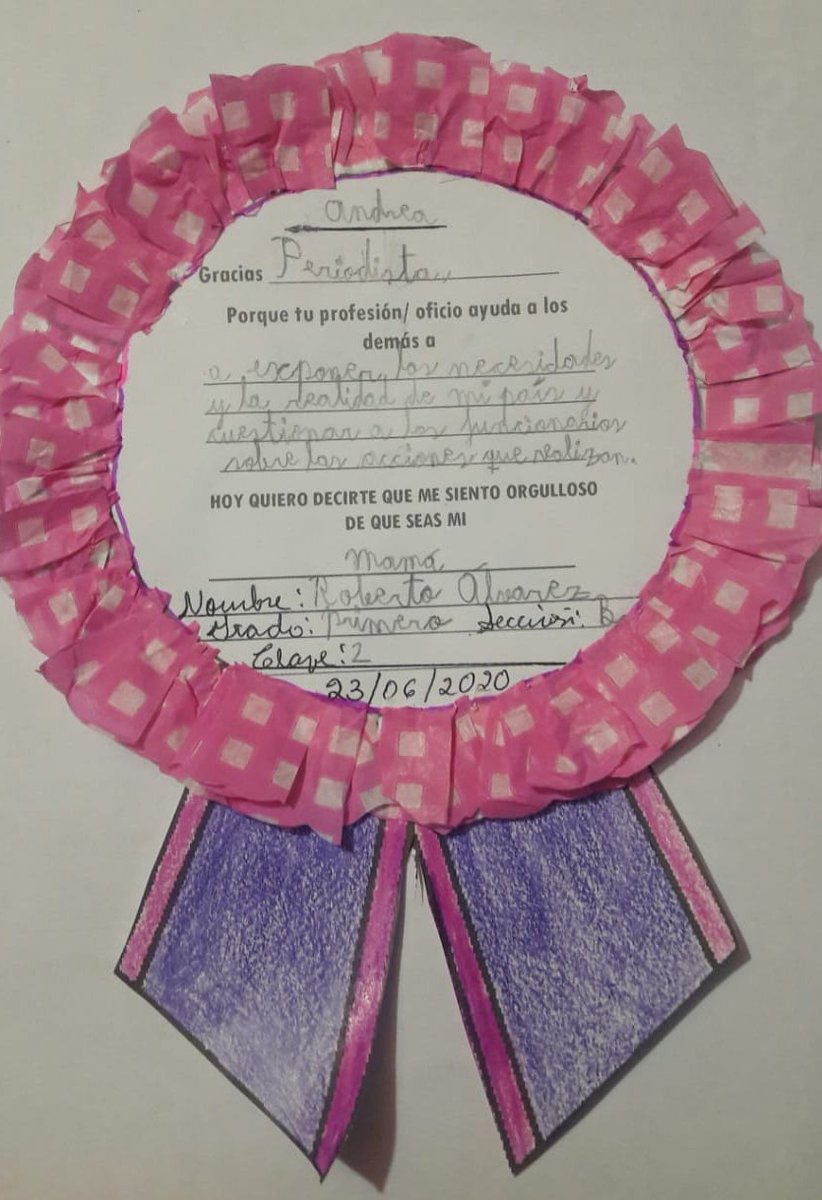 Andrea
Gracias Periodista
Porque tu profesión/ oficio ayuda a los
demás a
a exponer las necesidades
y la realidad de mi país y
cuestionar a los funcionarios
sobre las acciones que realizan.
HOY QUIERO DECIRTE QUE ME SIENTO ORGULLOSO
DE QUE SEAS MI
Mamá
Nombre: Roberto Álvarez
Grado: Primero Sección: B
Clave: 2
23/06/2020